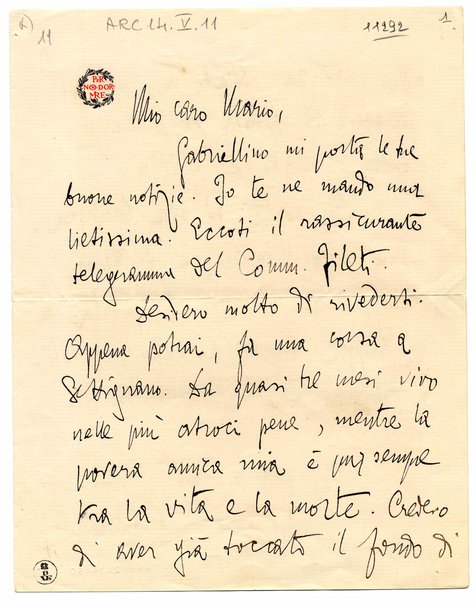 11
ARC 14. V. 11
11292
1
PER
NON DOR
MIRE
Mio caro Mario,
Gabriellino mi porta le tue
buone notizie. Io te ne mando una
lietissima. Eccoti il rassicurante
telegramma del Comm. Fileti.
Desidero molto di rivederti.
Appena potrai, fa una corsa a
Settignano. Da quasi tre mesi vivo
nelle più atroci pene, mentre la
povera amica mia è pur sempre
tra la vita e la morte. Credevo
di aver già toccato il fondo di